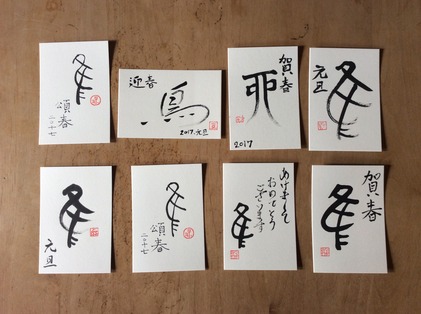 隹
頌春
迎春
鳥
2017.元旦
賀春
酉
2017
隹
元旦
隹
元旦
隹
頌春
あけまして
おめでとう
ございます
隹
賀春
隹